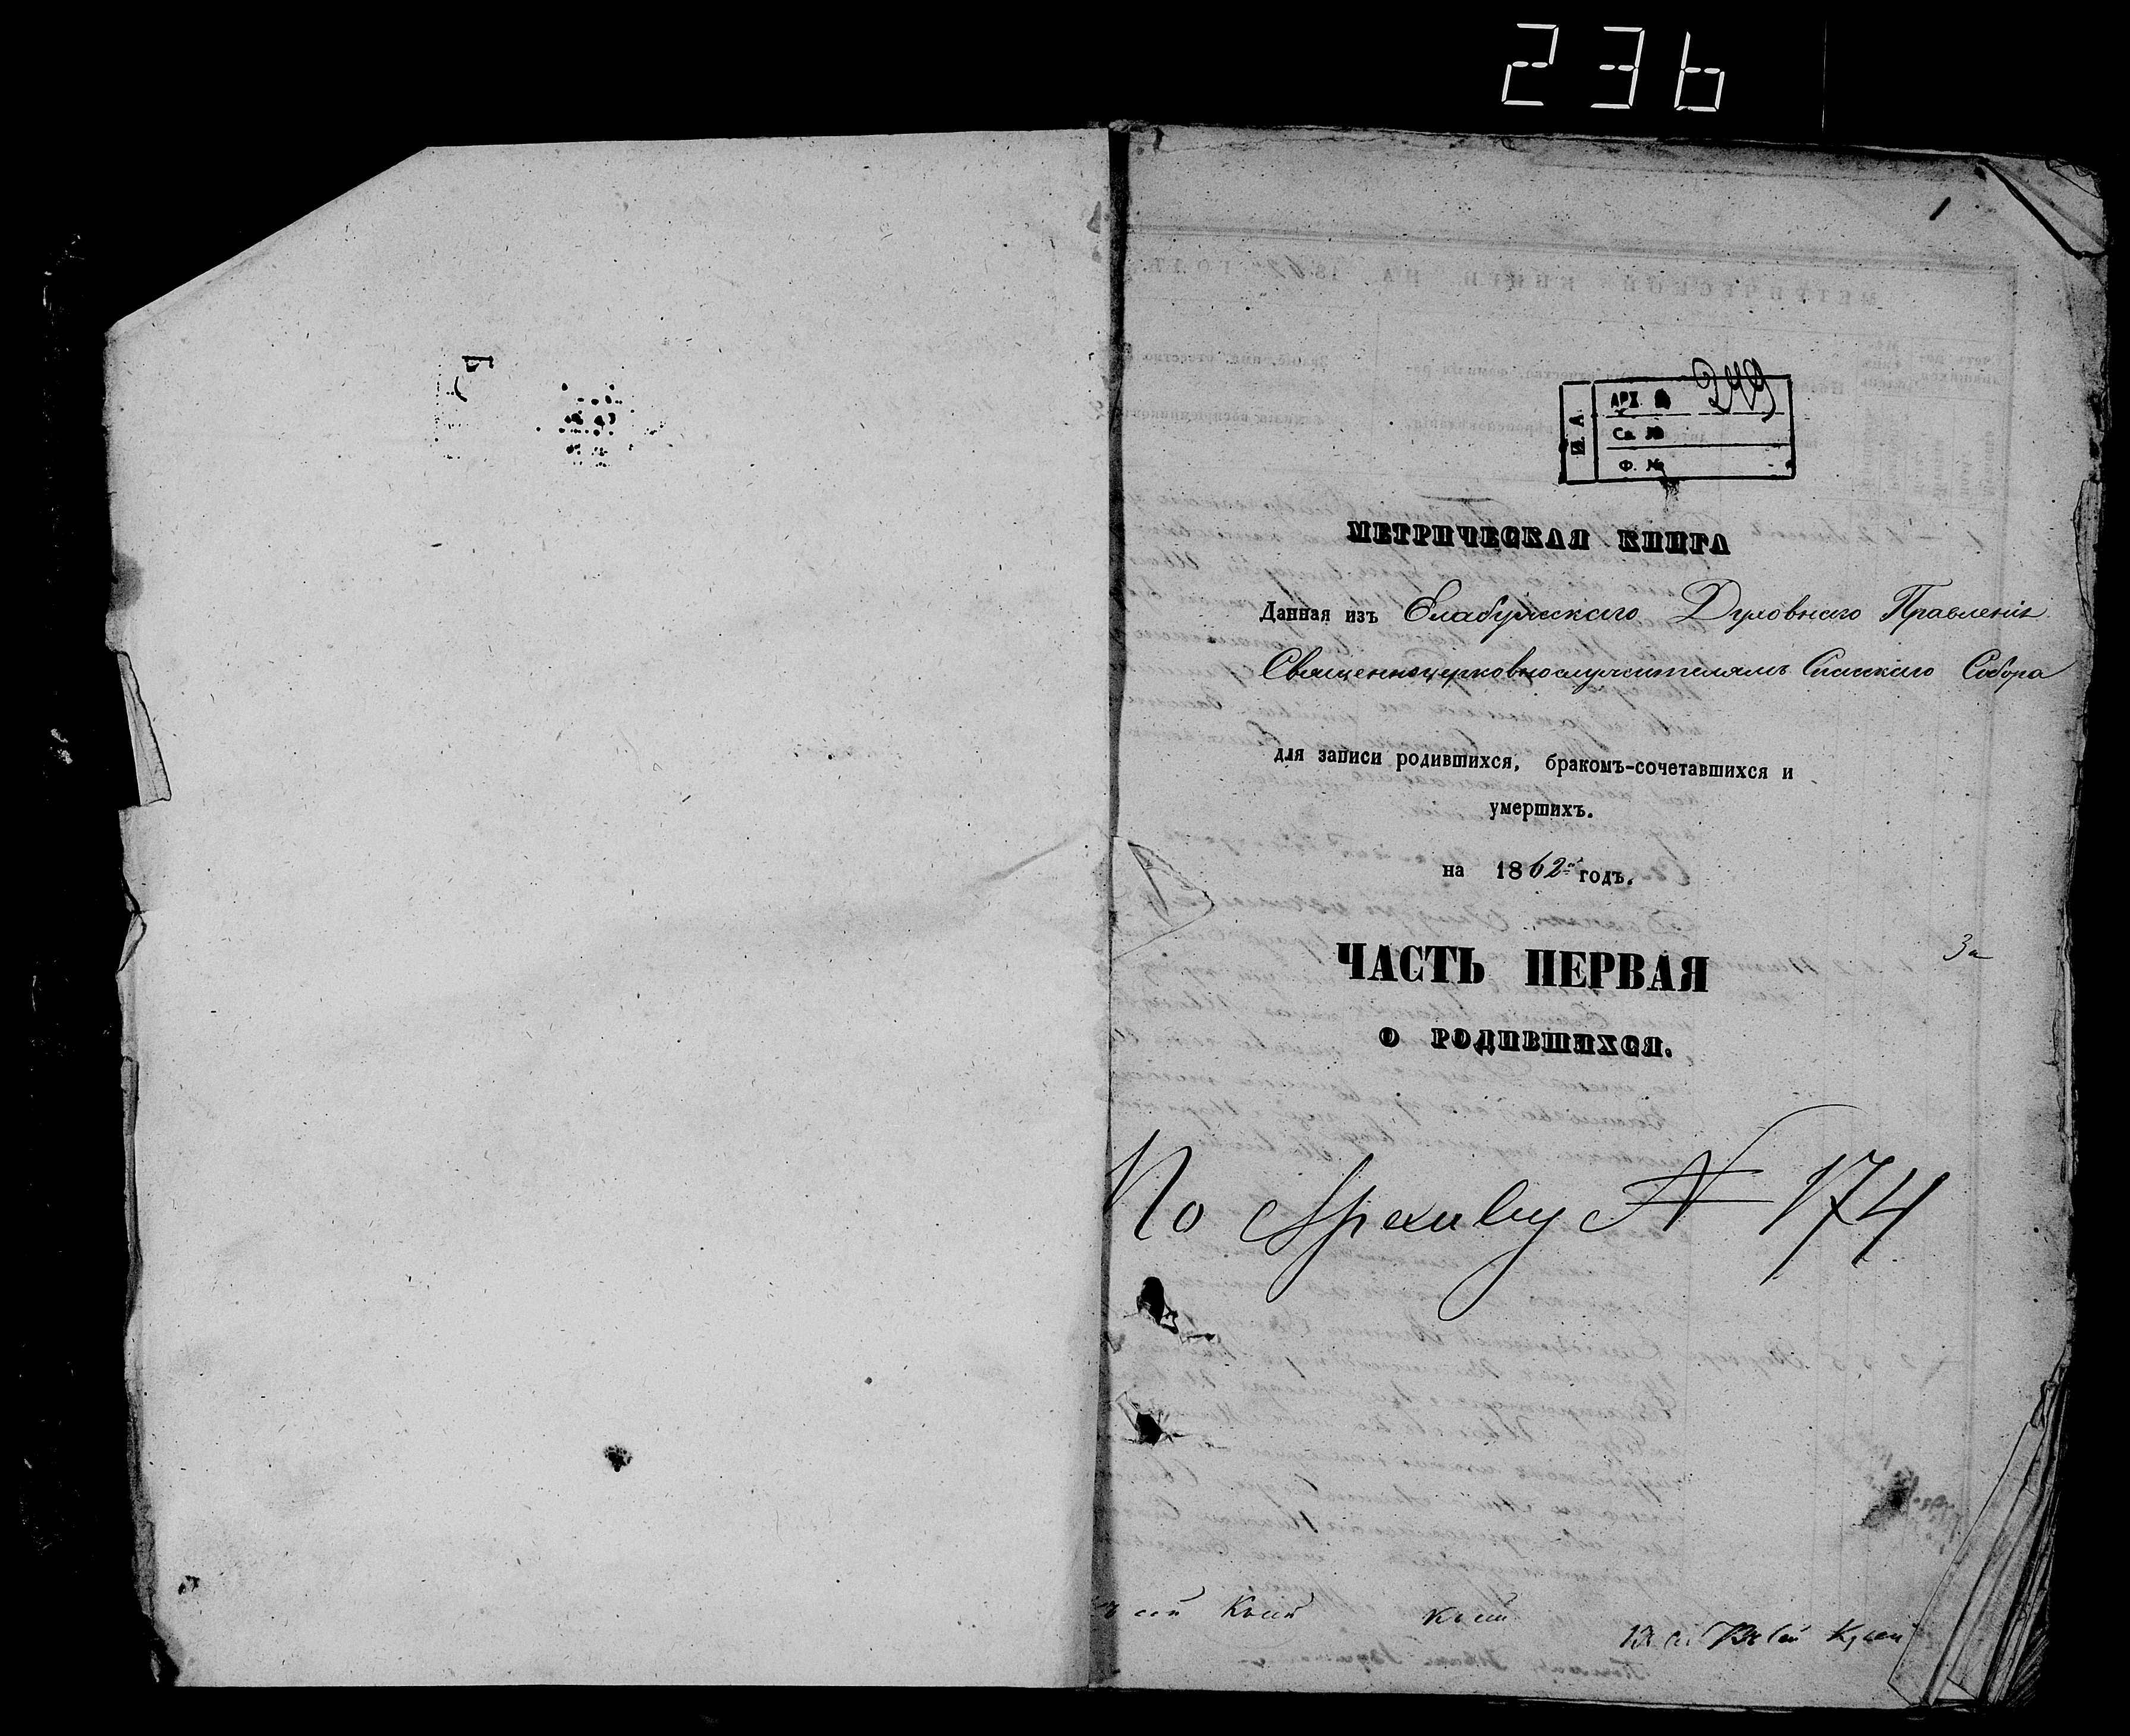 236
1
249
И. А.
АРХ. №
Св. №
Ф. №
МЕТРИЧЕСКАЯ КНИГА
Данная изъ Елабужскаго Духовнаго Правленія
Священноцерковнослужителямъ Спасскаго Собора
для записи родившихся, бракомъ-сочетавшихся и
умершихъ.
на 1862й годъ.
ЧАСТЬ ПЕРВАЯ
За
О РОДИВШИХСЯ.
По Архиву № 174